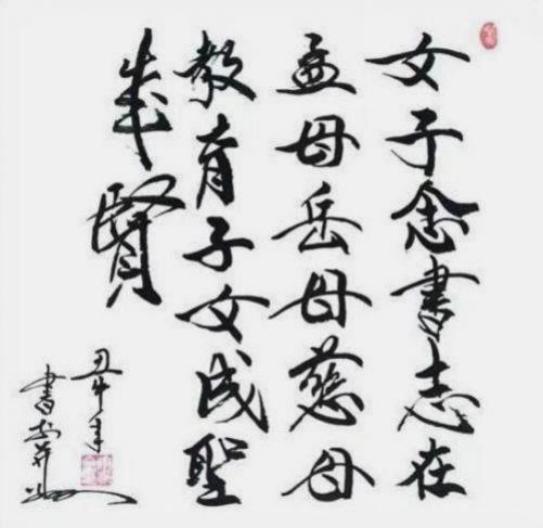 女子念书志在
孟母岳母慈母
教育子女成聖
成賢
丑牛年
書於蘇州